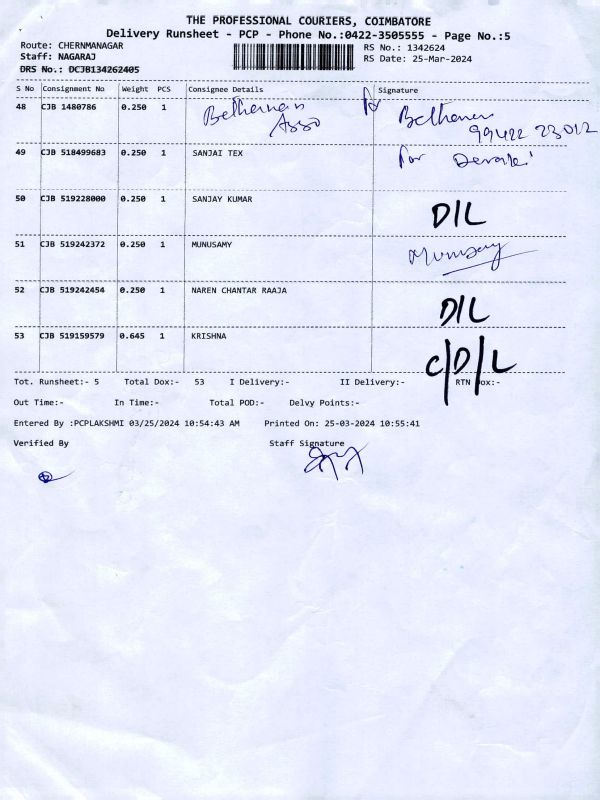 THE PROFESSIONAL COURIERS, COIMBATORE
Delivery Runsheet - PCP - Phone No.:0422-3505555 - Page No.:5
Route: CHERNMANAGAR RS No.: 1342624
Staff: NAGARAJ RS Date: 25-Mar-2024
DRS No.: DCJB134262405
S No Consignment No Weight PCS Consignee Details Signature
48 CJB 1480786 0.250 1
99422 23012
49 CJB 518499683 0.250 1 SANJAI TEX For
50 CJB 519228000 0.250 1 SANJAY KUMAR D/L
51 CJB 519242372 0.250 1 MUNUSAMY
52 CJB 519242454 0.250 1 NAREN CHANTAR RAAJA D/L
53 CJB 519159579 0.645 1 KRISHNA C/D/L
Tot. Runsheet:- 5 Total Dox:- 53 I Delivery:- II Delivery:- RTN Dox:-
Out Time:- In Time:- Total POD:- Delvy Points:-
Entered By :PCPLAKSHMI 03/25/2024 10:54:43 AM Printed On: 25-03-2024 10:55:41
Verified By Staff Signature